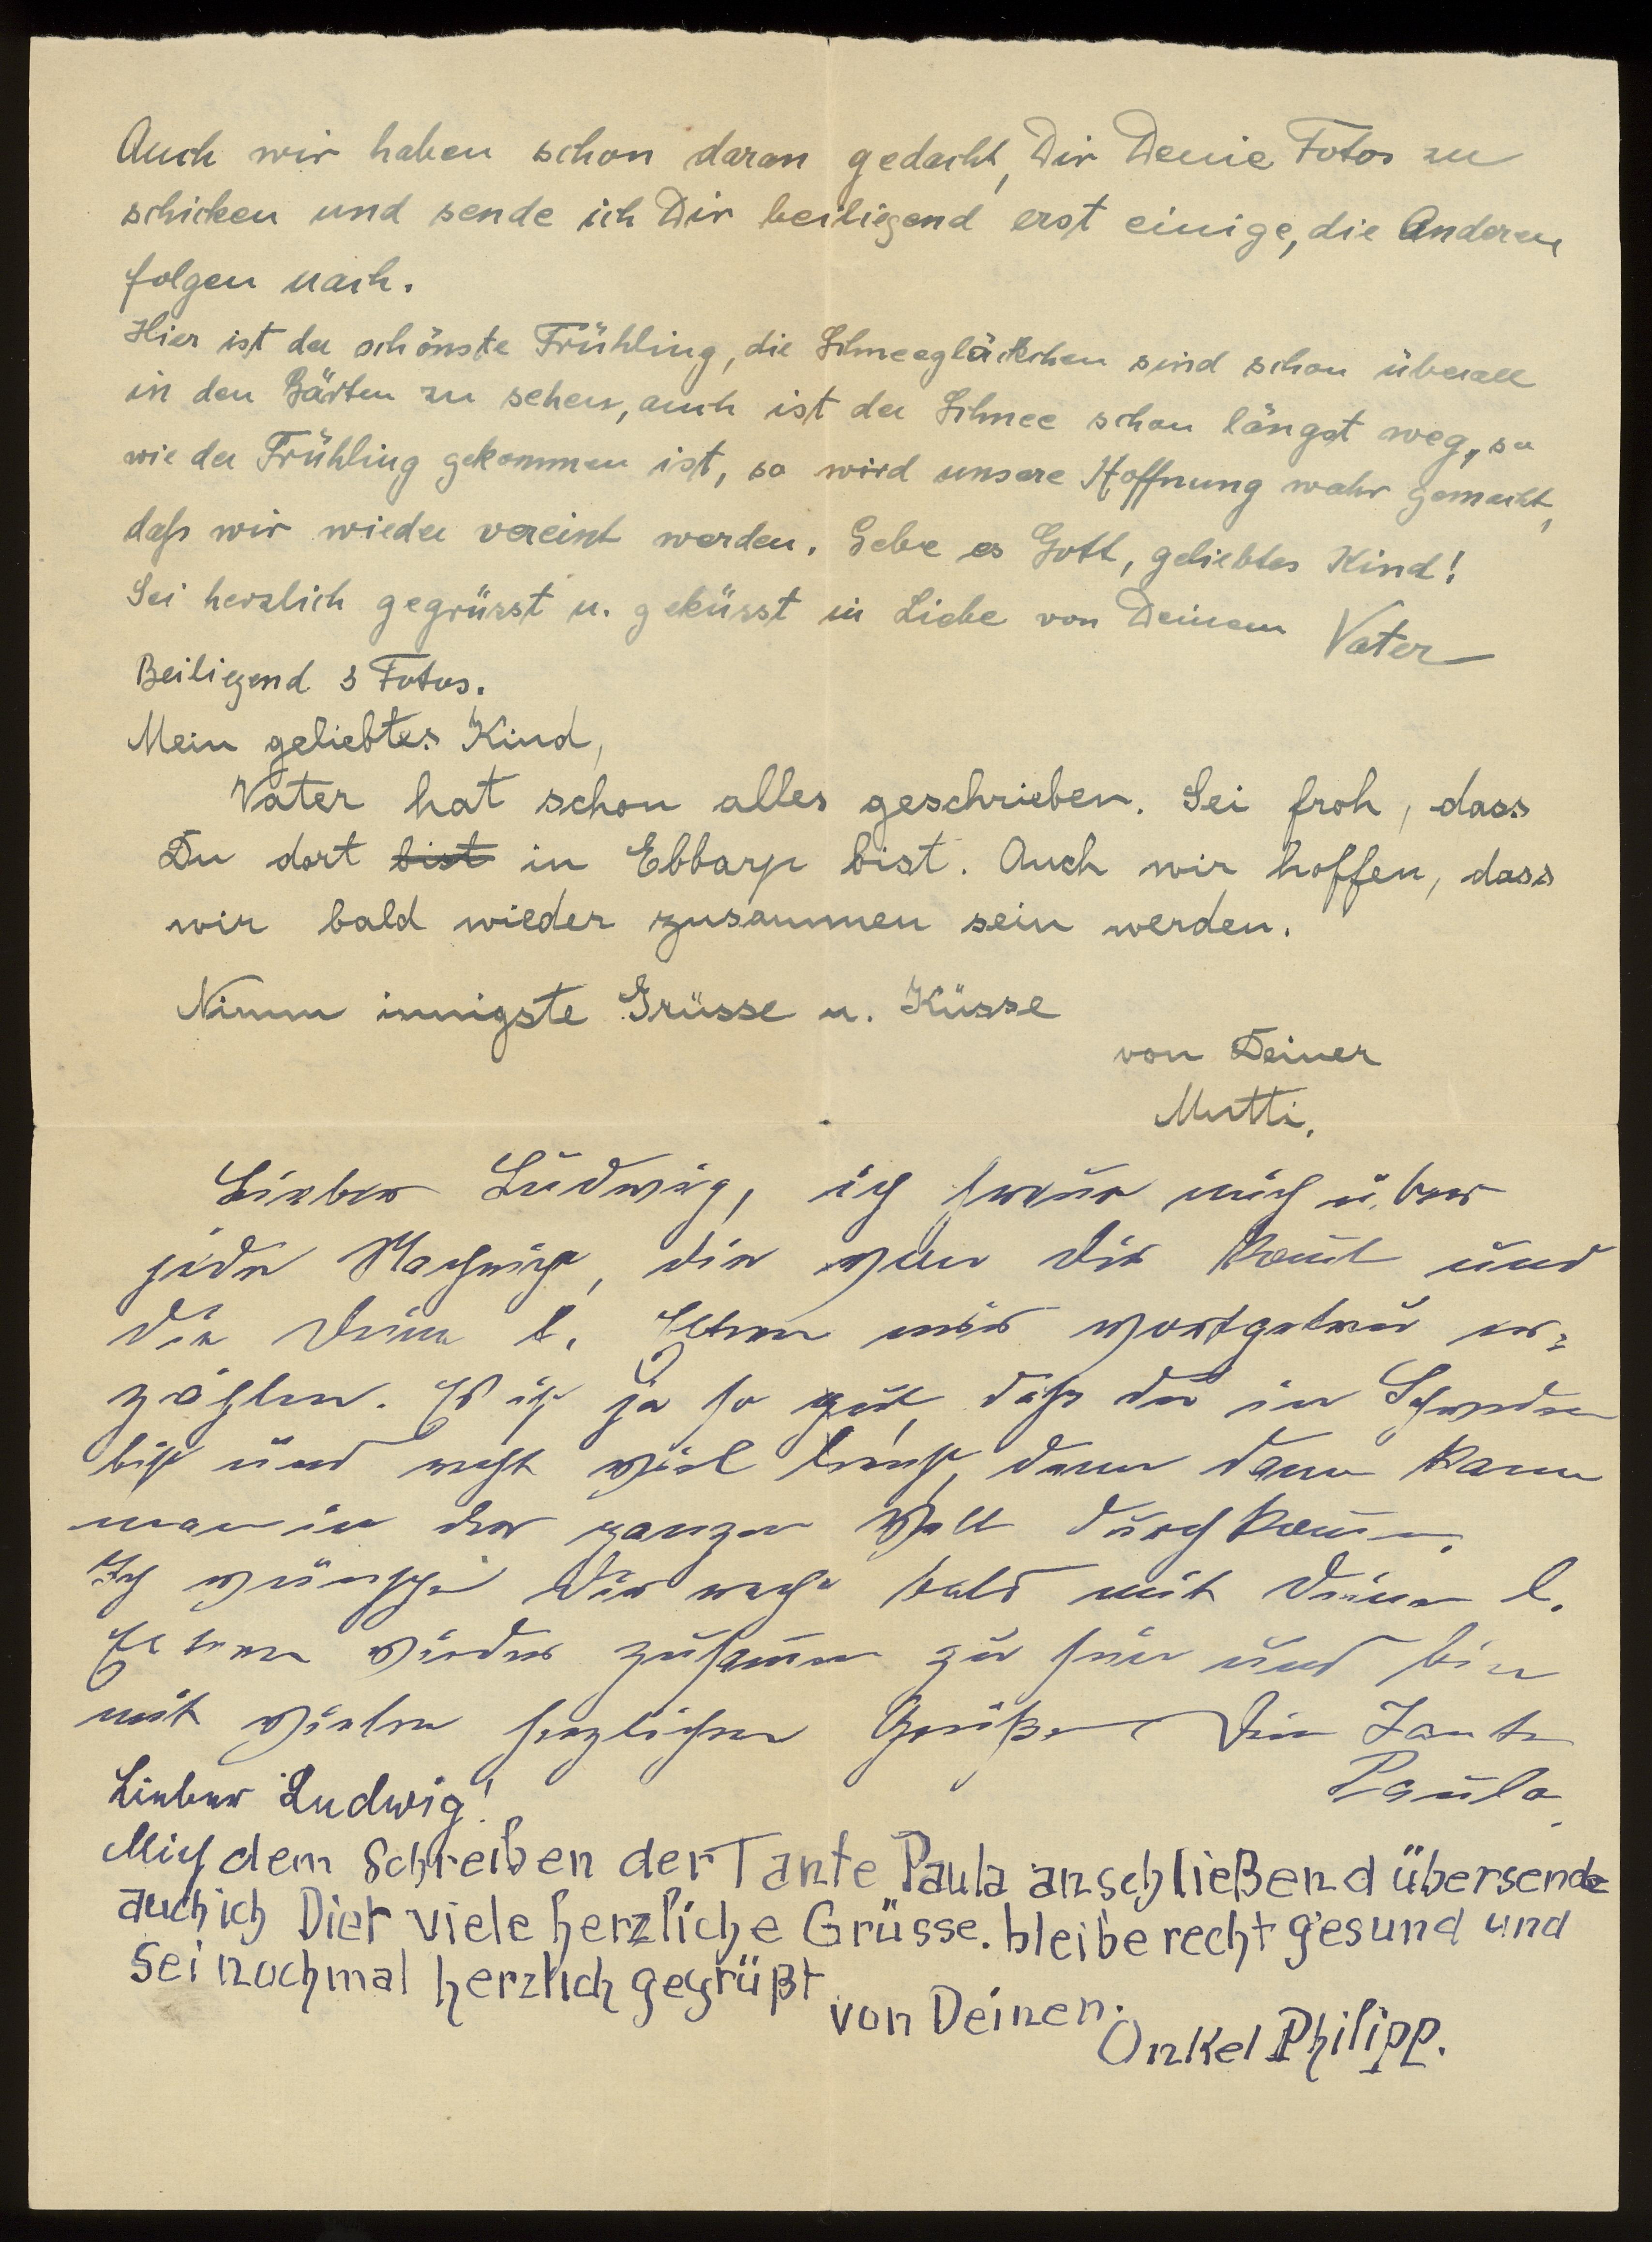 Auch wir haben schon daran gedacht, Dir Deine Fotos zu
schicken und sende ich Dir beiliegend erst einige, die Anderen
folgen nach.
Hier ist der schönste Frühling, die Schneeglöckchen sind schon überall
in den Gärten zu sehen, auch ist der Schnee schon längst weg, so
wie der Frühling gekommen ist, so wird unsere Hoffnung wahr gemacht,
daß wir wieder vereint werden. Gebe es Gott, geliebtes Kind!
Sei herzlich gegrüsst u. geküsst in Liebe von Deinem Vater
Beiliegend Fotos.
Mein geliebtes Kind,
Vater hat schon alles geschrieben. Sei froh, dass
Du dort bist in Ebbarp bist. Auch wir hoffen, dass
wir bald wieder zusammen sein werden.
Nimm innigste Grüsse u. Küsse
von Deiner
Mutti.
Lieber Ludwig, ich freue mich über
jede Nachricht, die von Dir kommt und
die Deine l. Eltern mir wortgetreu er-
zählen. Es ist ja so gut, daß du in Schweden
bist und recht viel lernst, denn dann kann
man in der ganzen Welt durchkommen.
Ich wünsche Dir recht bald mit Deinen l.
Eltern wieder zusammen zu sein und bin
mit vielen herzlichen Grüßen Dein Tante
Paula.
Lieber Ludwig!
Mich dem Schreiben der Tante Paula anschließend übersende
auch ich Dier viele herzliche Grüsse. bleibe recht gesund und
sei nochmal herzlich gegrüßt
von Deinen.
Onkel Philipp.